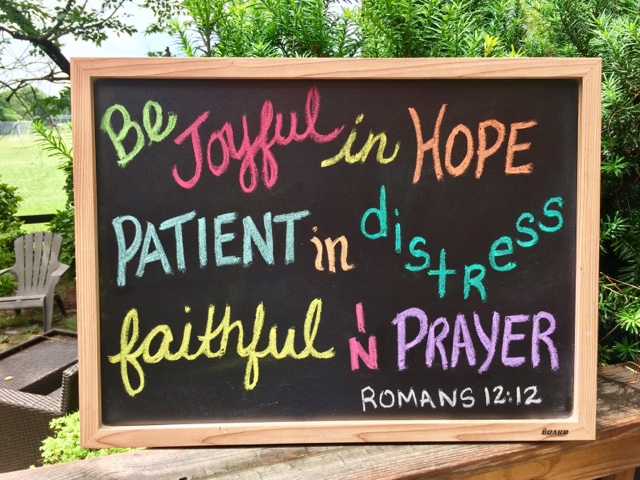 Be Joyful in HOPE
PATIENT in distress
faithful IN PRAYER
ROMANS 12:12
BOARD